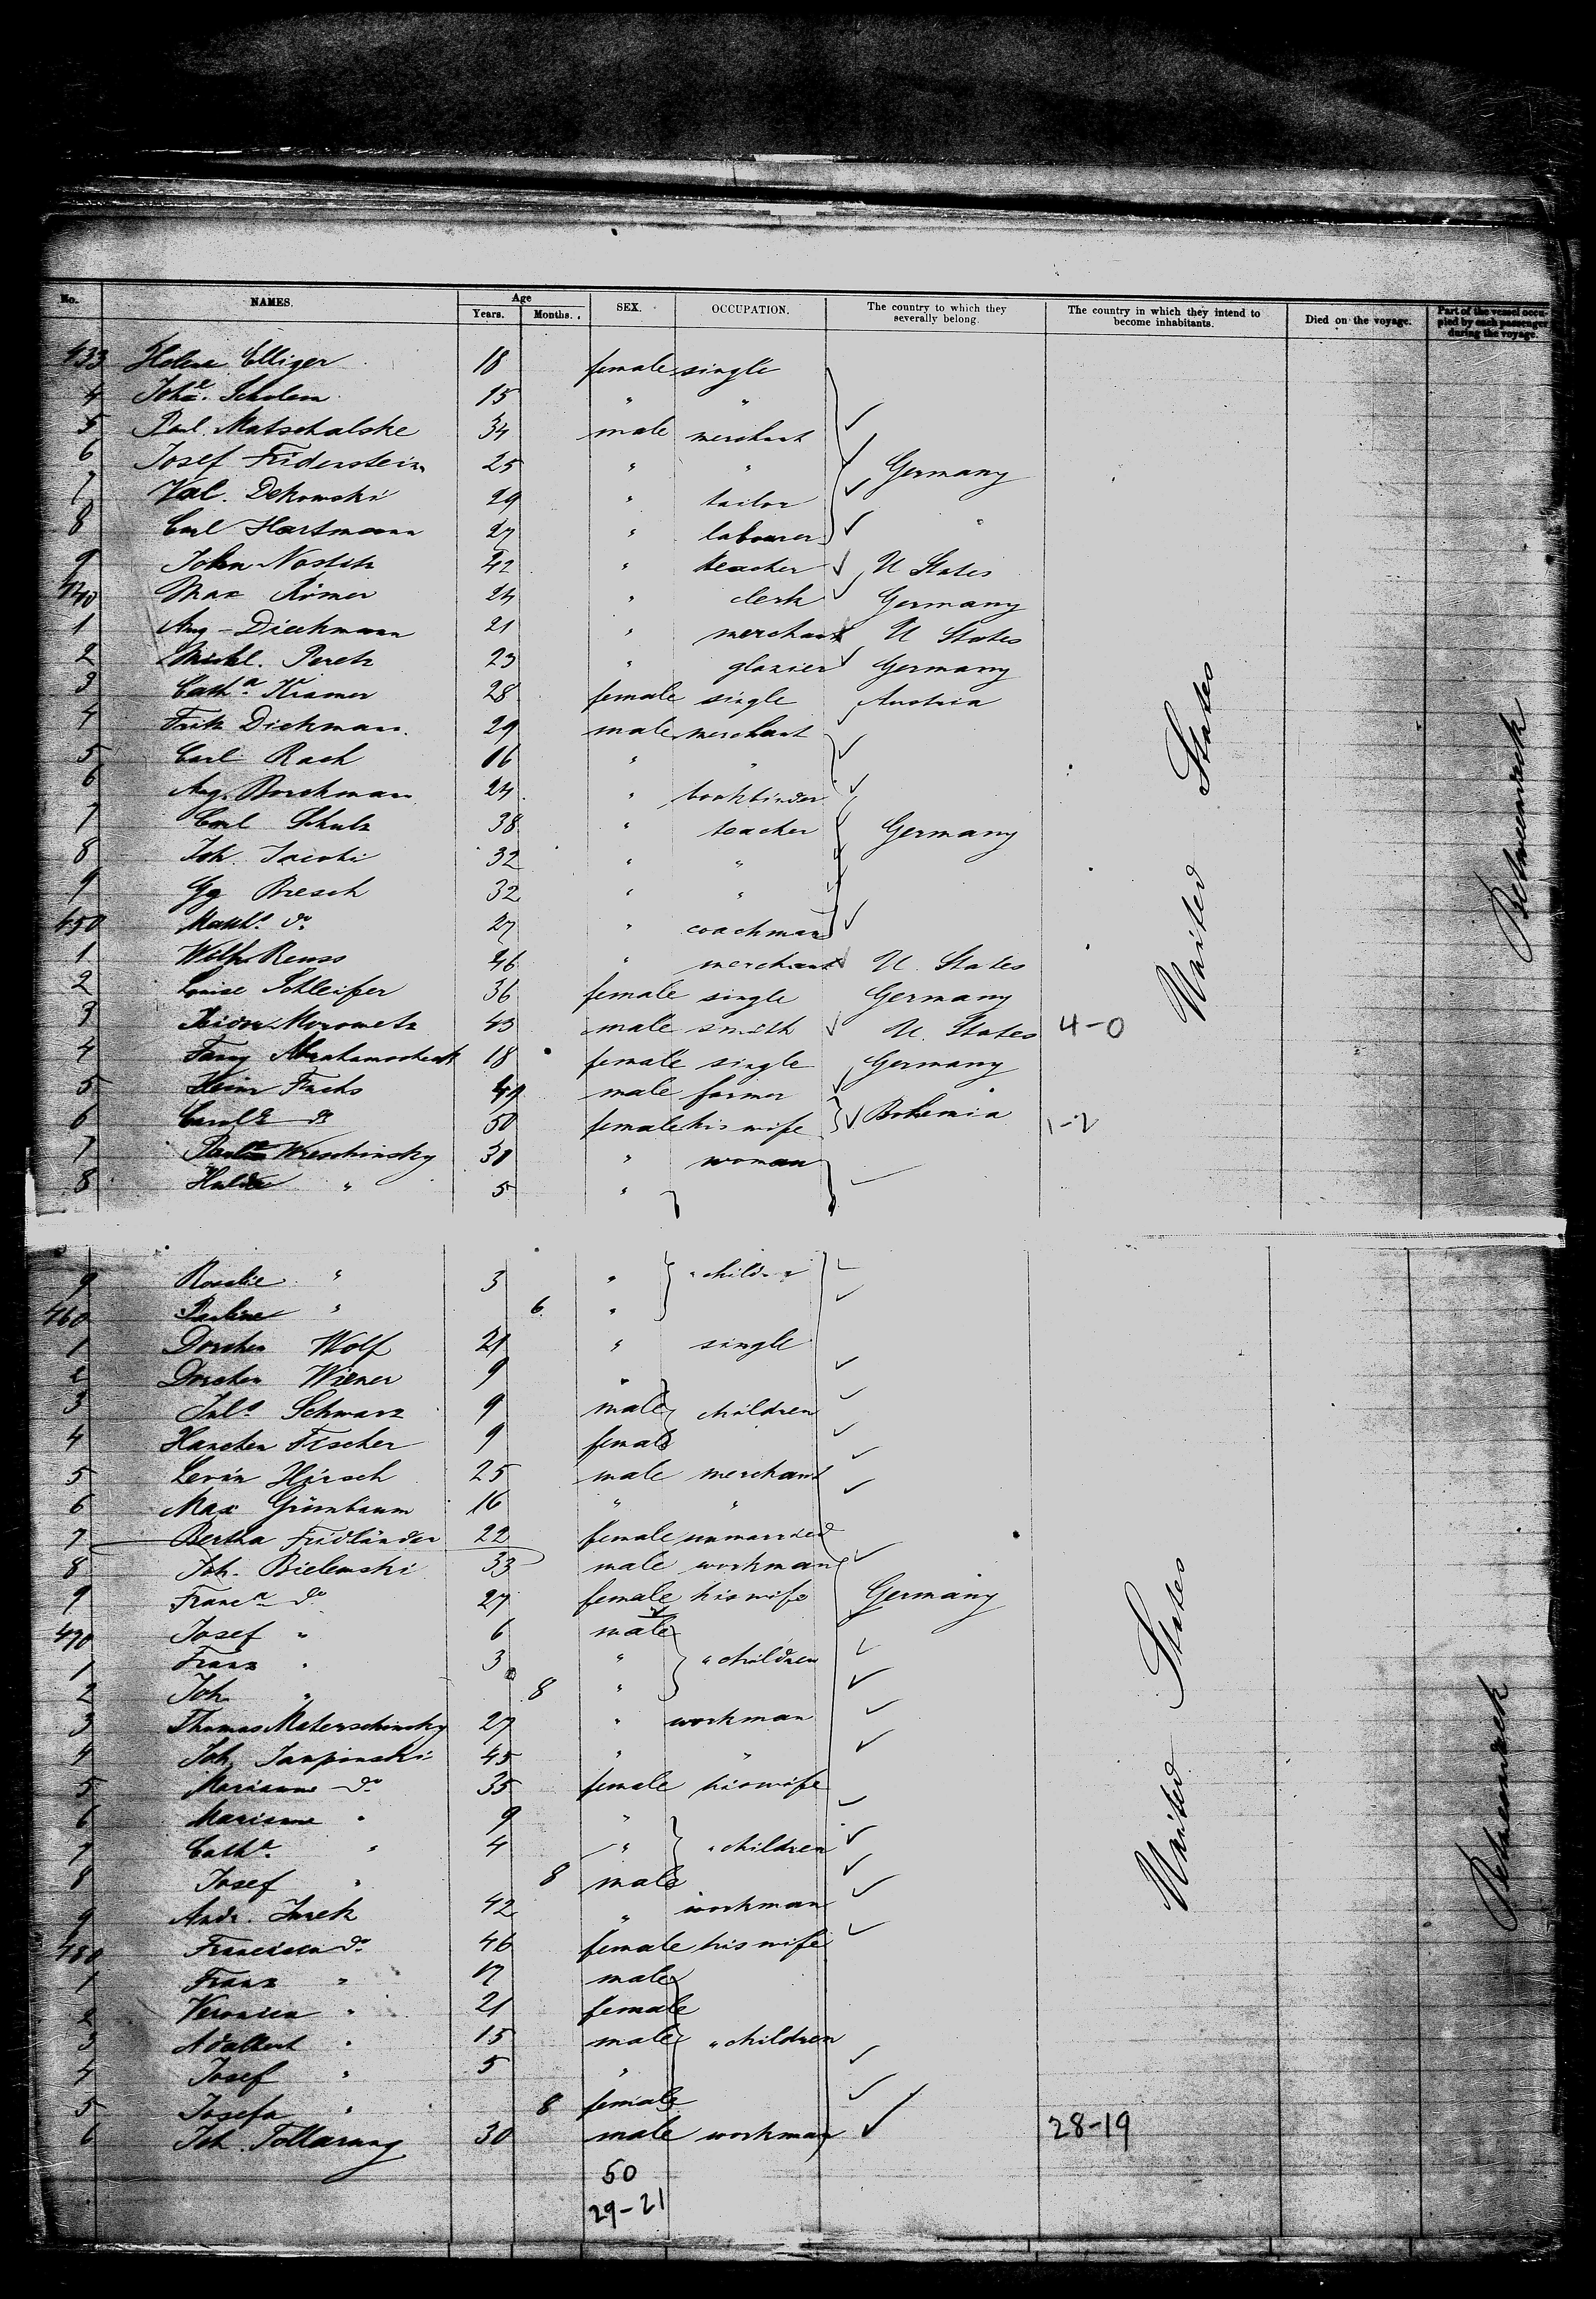 No. NAMES. Age Years. Months. SEX. OCCUPATION. The country to which they severally belong. The country in which they intend to become inhabitants. Died on the voyage. Part of the vessel occupied by each passenger during the voyage.
433 Helene Elliger 18 female single
4 Joh.e Scholem 15 " "
5 Paul Matschalske 34 male merchant
6 Josef Friderstein 25 " " Germany
7 Val. Dekowski 29 " tailor
8 Carl Hartmann 27 " labourer
9 John Nostitz 42 " teacher U States
440 Max Römer 24 " clerk Germany
1 Aug. Dieckmann 21 " merchant U States
2 Michl. Peretz 23 " glazier Germany
3 Cath.a Kramer 28 female single Austria
4 Fritz Diekmann 29 male merchant
5 Carl Rach 16 " "
6 Aug. Borchmann 24 " bookbinder
7 Carl Schulz 38 " teacher Germany
8 Joh. Jacobi 32 " "
9 Gg Bresch 32 " "
450 do 27 " coachman
1 Wilh. Reuss 46 " merchant U. States
2 Louise Schleifer 36 female single Germany
3 Isidor Morometz 43 male smith U. States 4-0
4 Fanny 18 female single Germany
5 Heinr Fuchs 49 male farmer
6 Carol.e do 50 female his wife Bohemia 1-2
7 Wreschinsky 30 " woman
8 Hulda " 5 "
9 Rosalie " 3 " " children
460 Pauline " 6 "
1 Dorchen Wolf 21 " single
2 Dorchen Wiener 9 "
3 Jul.s Schwarz 9 male children
4 Hanchen Fischer 9 female
5 Levin Hirsch 25 male merchant
6 Max Grünbaum 16 " "
7 Bertha Fridländer 22 female unmarried
8 Joh. Bielewski 33 male workman
9 Franc.a do 27 female his wife Germany
470 Josef " 6 male
1 Franz " 3 " " children
2 Joh. " 8 "
3 Thomas Materschinsky 27 " workman
4 Joh. 45 " "
5 Marianne do 35 female his wife
6 Marianne " 9 "
7 Cath.a " 4 " " children
8 Josef " 8 male
9 Andr. Jurek 42 " workman
480 Francisca do 46 female his wife
1 Franz " 17 male
2 Veronica " 21 female
3 Adalbert " 15 male " children
4 Josef " 5 "
5 Josefa " 8 female
6 Joh. 30 male workman 28-19
50
29-21
United States
Betweendeck
United States
Betweendeck